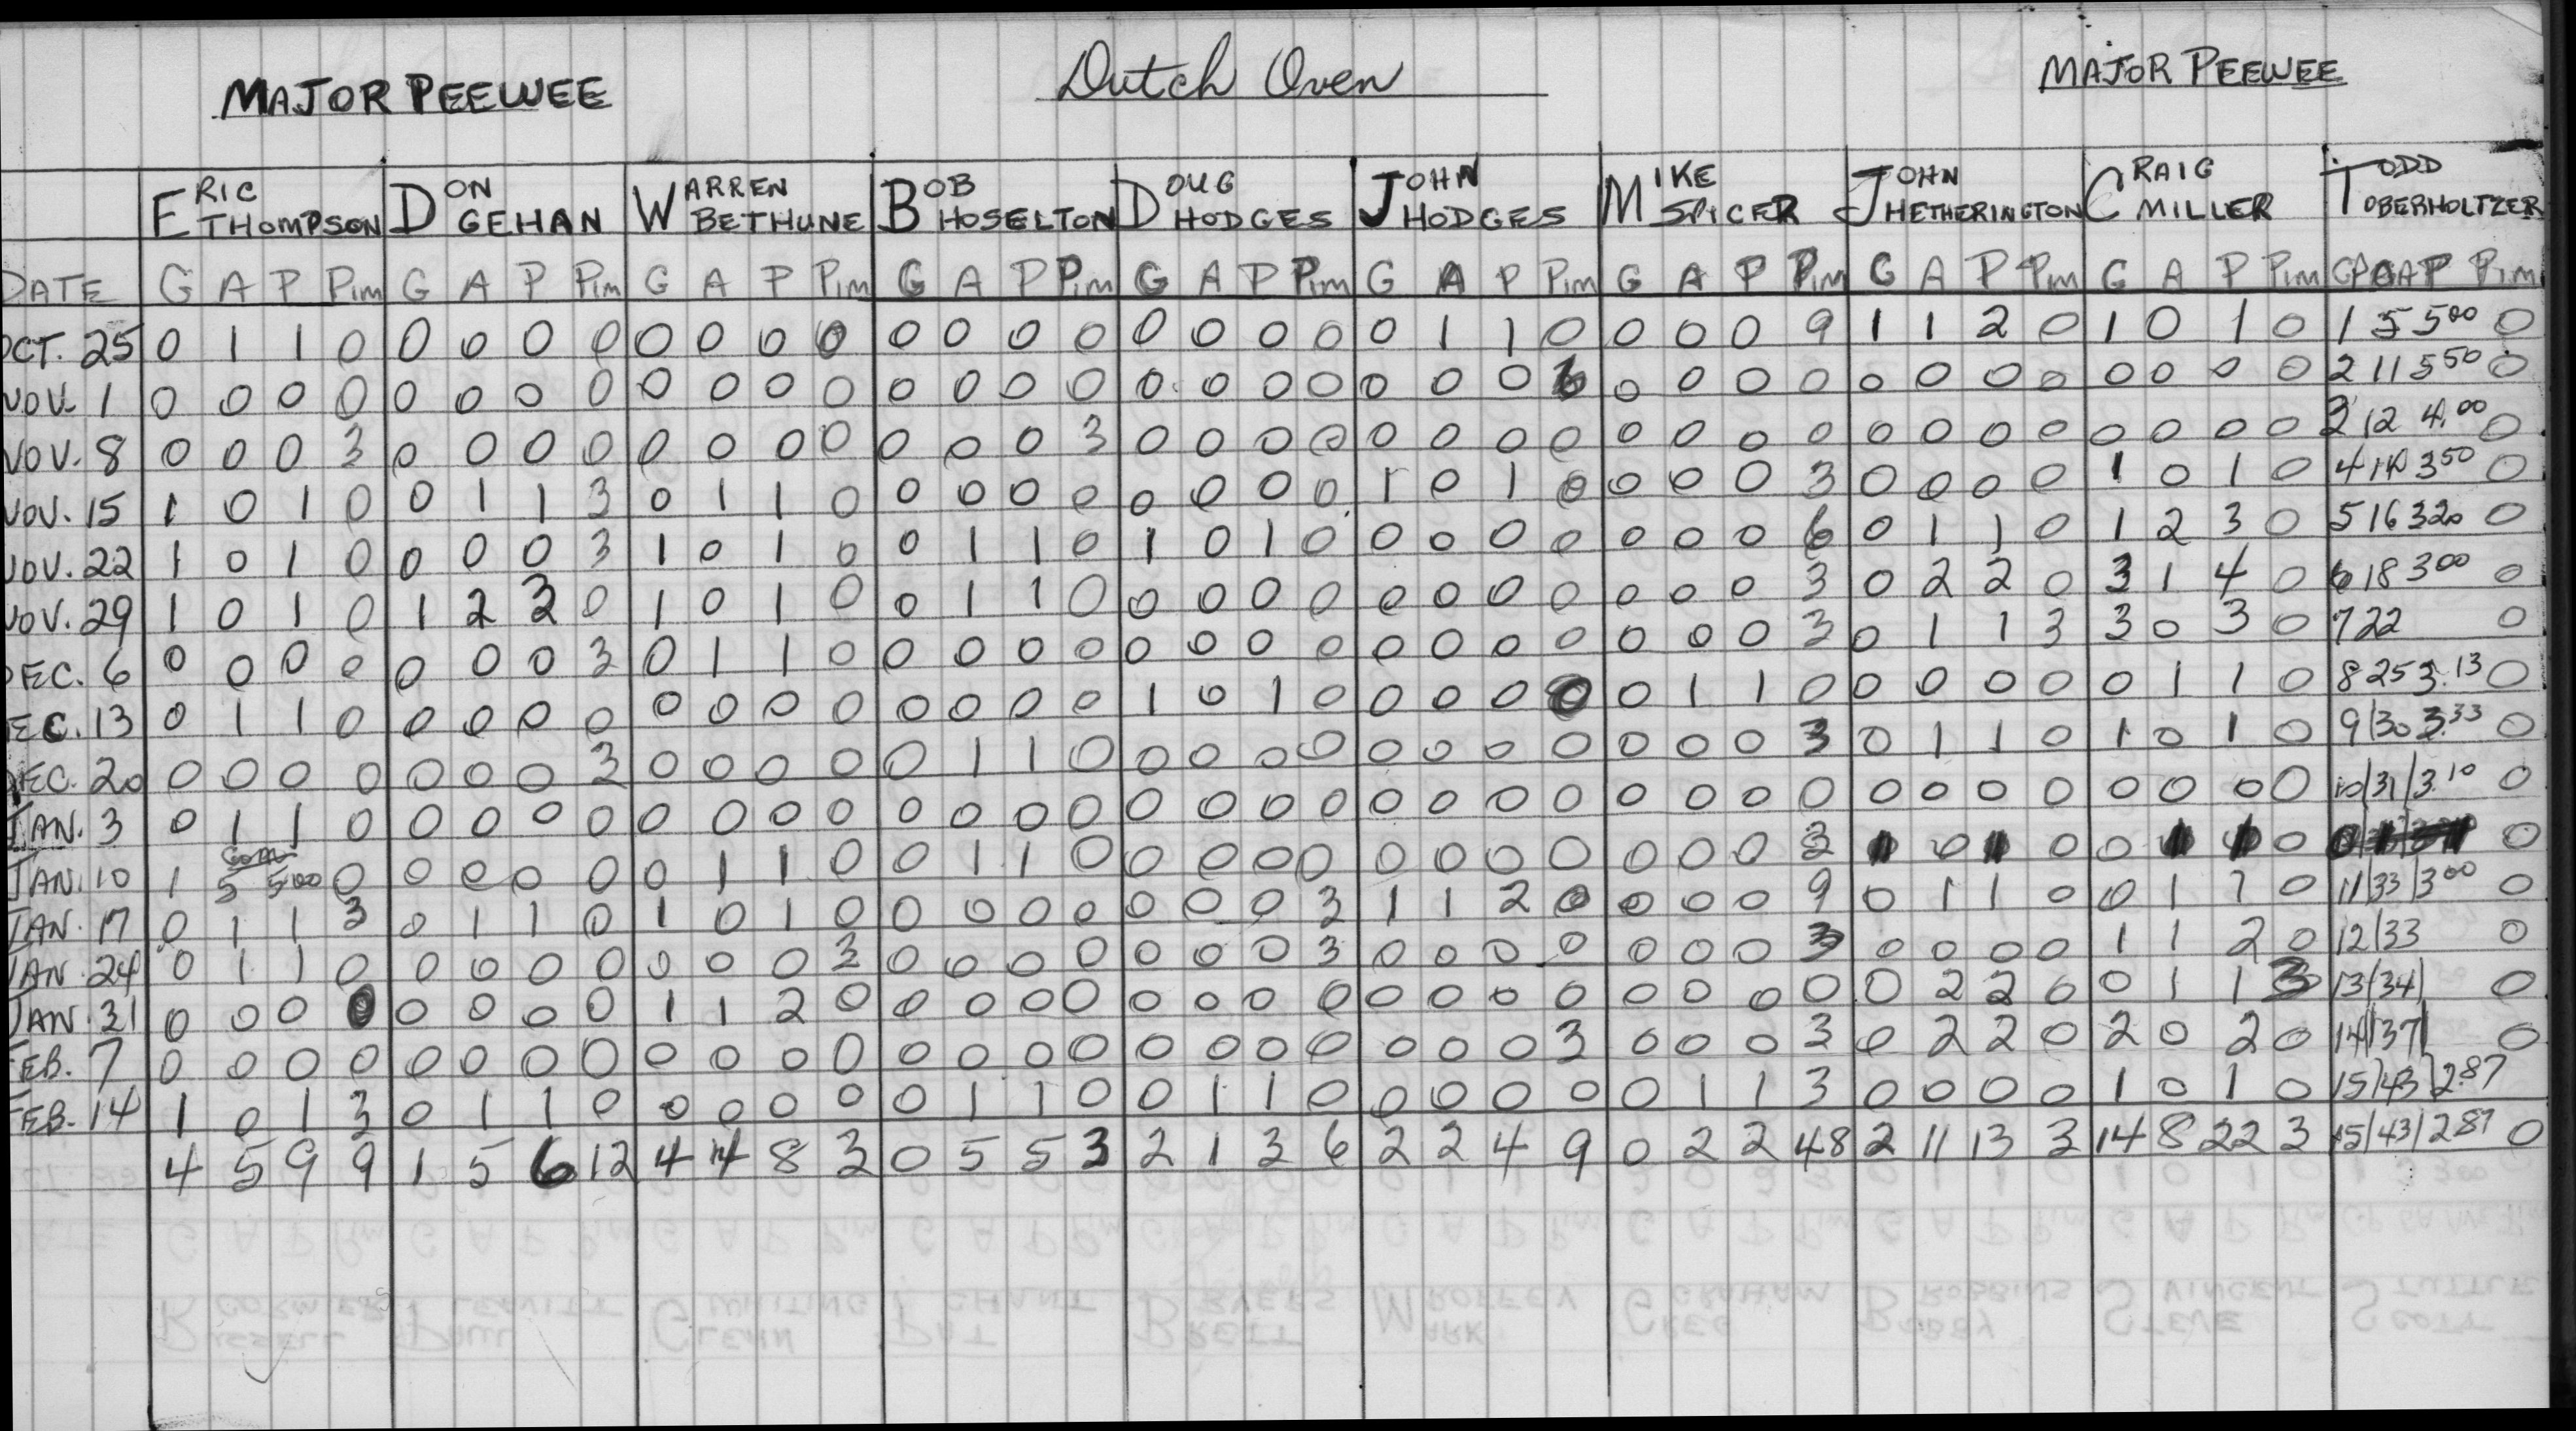 MAJOR PEEWEE Dutch Oven MAJOR PEEWEE
ERIC THOMPSON DON GEHAN WARREN BETHUNE BOB HOSELTON DOUG HODGES JOHN HODGES MIKE SPICER JOHN HETHERINGTON CRAIG MILLER TODD OBERHOLTZER
DATE G A P Pim G A P Pim G A P Pim G A P Pim G A P Pim G A P Pim G A P Pim G A P Pim G A P Pim Pim
OCT. 25 0 1 1 0 0 0 0 0 0 0 0 0 0 0 0 0 0 0 0 0 0 1 1 0 0 0 0 9 1 1 2 0 1 0 1 0 1 5 5.00 0
NOV. 1 0 0 0 0 0 0 0 0 0 0 0 0 0 0 0 0 0 0 0 0 0 0 0 6 0 0 0 0 0 0 0 0 0 0 0 0 2 11 5.50 0
NOV. 8 0 0 0 3 0 0 0 0 0 0 0 0 0 0 0 3 0 0 0 0 0 0 0 0 0 0 0 0 0 0 0 0 0 0 0 0 3 12 4.00 0
NOV. 15 1 0 1 0 0 1 1 3 0 1 1 0 0 0 0 0 0 0 0 0 1 0 1 0 0 0 0 3 0 0 0 0 1 0 1 0 4 14 3.50 0
NOV. 22 1 0 1 0 0 0 0 3 1 0 1 0 0 1 1 0 1 0 1 0 0 0 0 0 0 0 0 6 0 1 1 0 1 2 3 0 5 16 3.20 0
NOV. 29 1 0 1 0 1 2 3 0 1 0 1 0 0 1 1 0 0 0 0 0 0 0 0 0 0 0 0 3 0 2 2 0 3 1 4 0 6 18 3.00 0
DEC. 6 0 0 0 0 0 0 0 3 0 1 1 0 0 0 0 0 0 0 0 0 0 0 0 0 0 0 0 3 0 1 1 3 3 0 3 0 7 22 0
DEC. 13 0 1 1 0 0 0 0 0 0 0 0 0 0 0 0 0 1 0 1 0 0 0 0 0 0 1 1 0 0 0 0 0 0 1 1 0 8 25 3.13 0
DEC. 20 0 0 0 0 0 0 0 3 0 0 0 0 0 1 1 0 0 0 0 0 0 0 0 0 0 0 0 3 0 1 1 0 1 0 1 0 9/30 3.33 0
JAN. 3 0 1 1 0 0 0 0 0 0 0 0 0 0 0 0 0 0 0 0 0 0 0 0 0 0 0 0 0 0 0 0 0 0 0 0 0 10/31/3.10 0
Gom
JAN. 10 1 5 5.00 0 0 0 0 0 0 1 1 0 0 1 1 0 0 0 0 0 0 0 0 0 0 0 0 3 0 0 0 0 0
JAN. 17 0 1 1 3 0 1 1 0 1 0 1 0 0 0 0 0 0 0 0 3 1 1 2 0 0 0 0 9 0 1 1 0 0 1 1 0 11/33/3.00 0
JAN. 24 0 1 1 0 0 0 0 0 0 0 0 3 0 0 0 0 0 0 0 3 0 0 0 0 0 0 0 3 0 0 0 0 1 1 2 0 12/33 0
JAN. 31 0 0 0 0 0 0 0 0 1 1 2 0 0 0 0 0 0 0 0 0 0 0 0 0 0 0 0 0 0 2 2 0 0 1 1 3 13/34/ 0
FEB. 7 0 0 0 0 0 0 0 0 0 0 0 0 0 0 0 0 0 0 0 0 0 0 0 3 0 0 0 3 0 2 2 0 2 0 2 0 14/37/ 0
FEB. 14 1 0 1 3 0 1 1 0 0 0 0 0 0 1 1 0 0 1 1 0 0 0 0 0 0 1 1 3 0 0 0 0 1 0 1 0 15/43/2.87
4 5 9 9 1 5 6 12 4 4 8 3 0 5 5 3 2 1 3 6 2 2 4 9 0 2 2 48 2 11 13 3 14 8 22 3 15/43/2.87 0